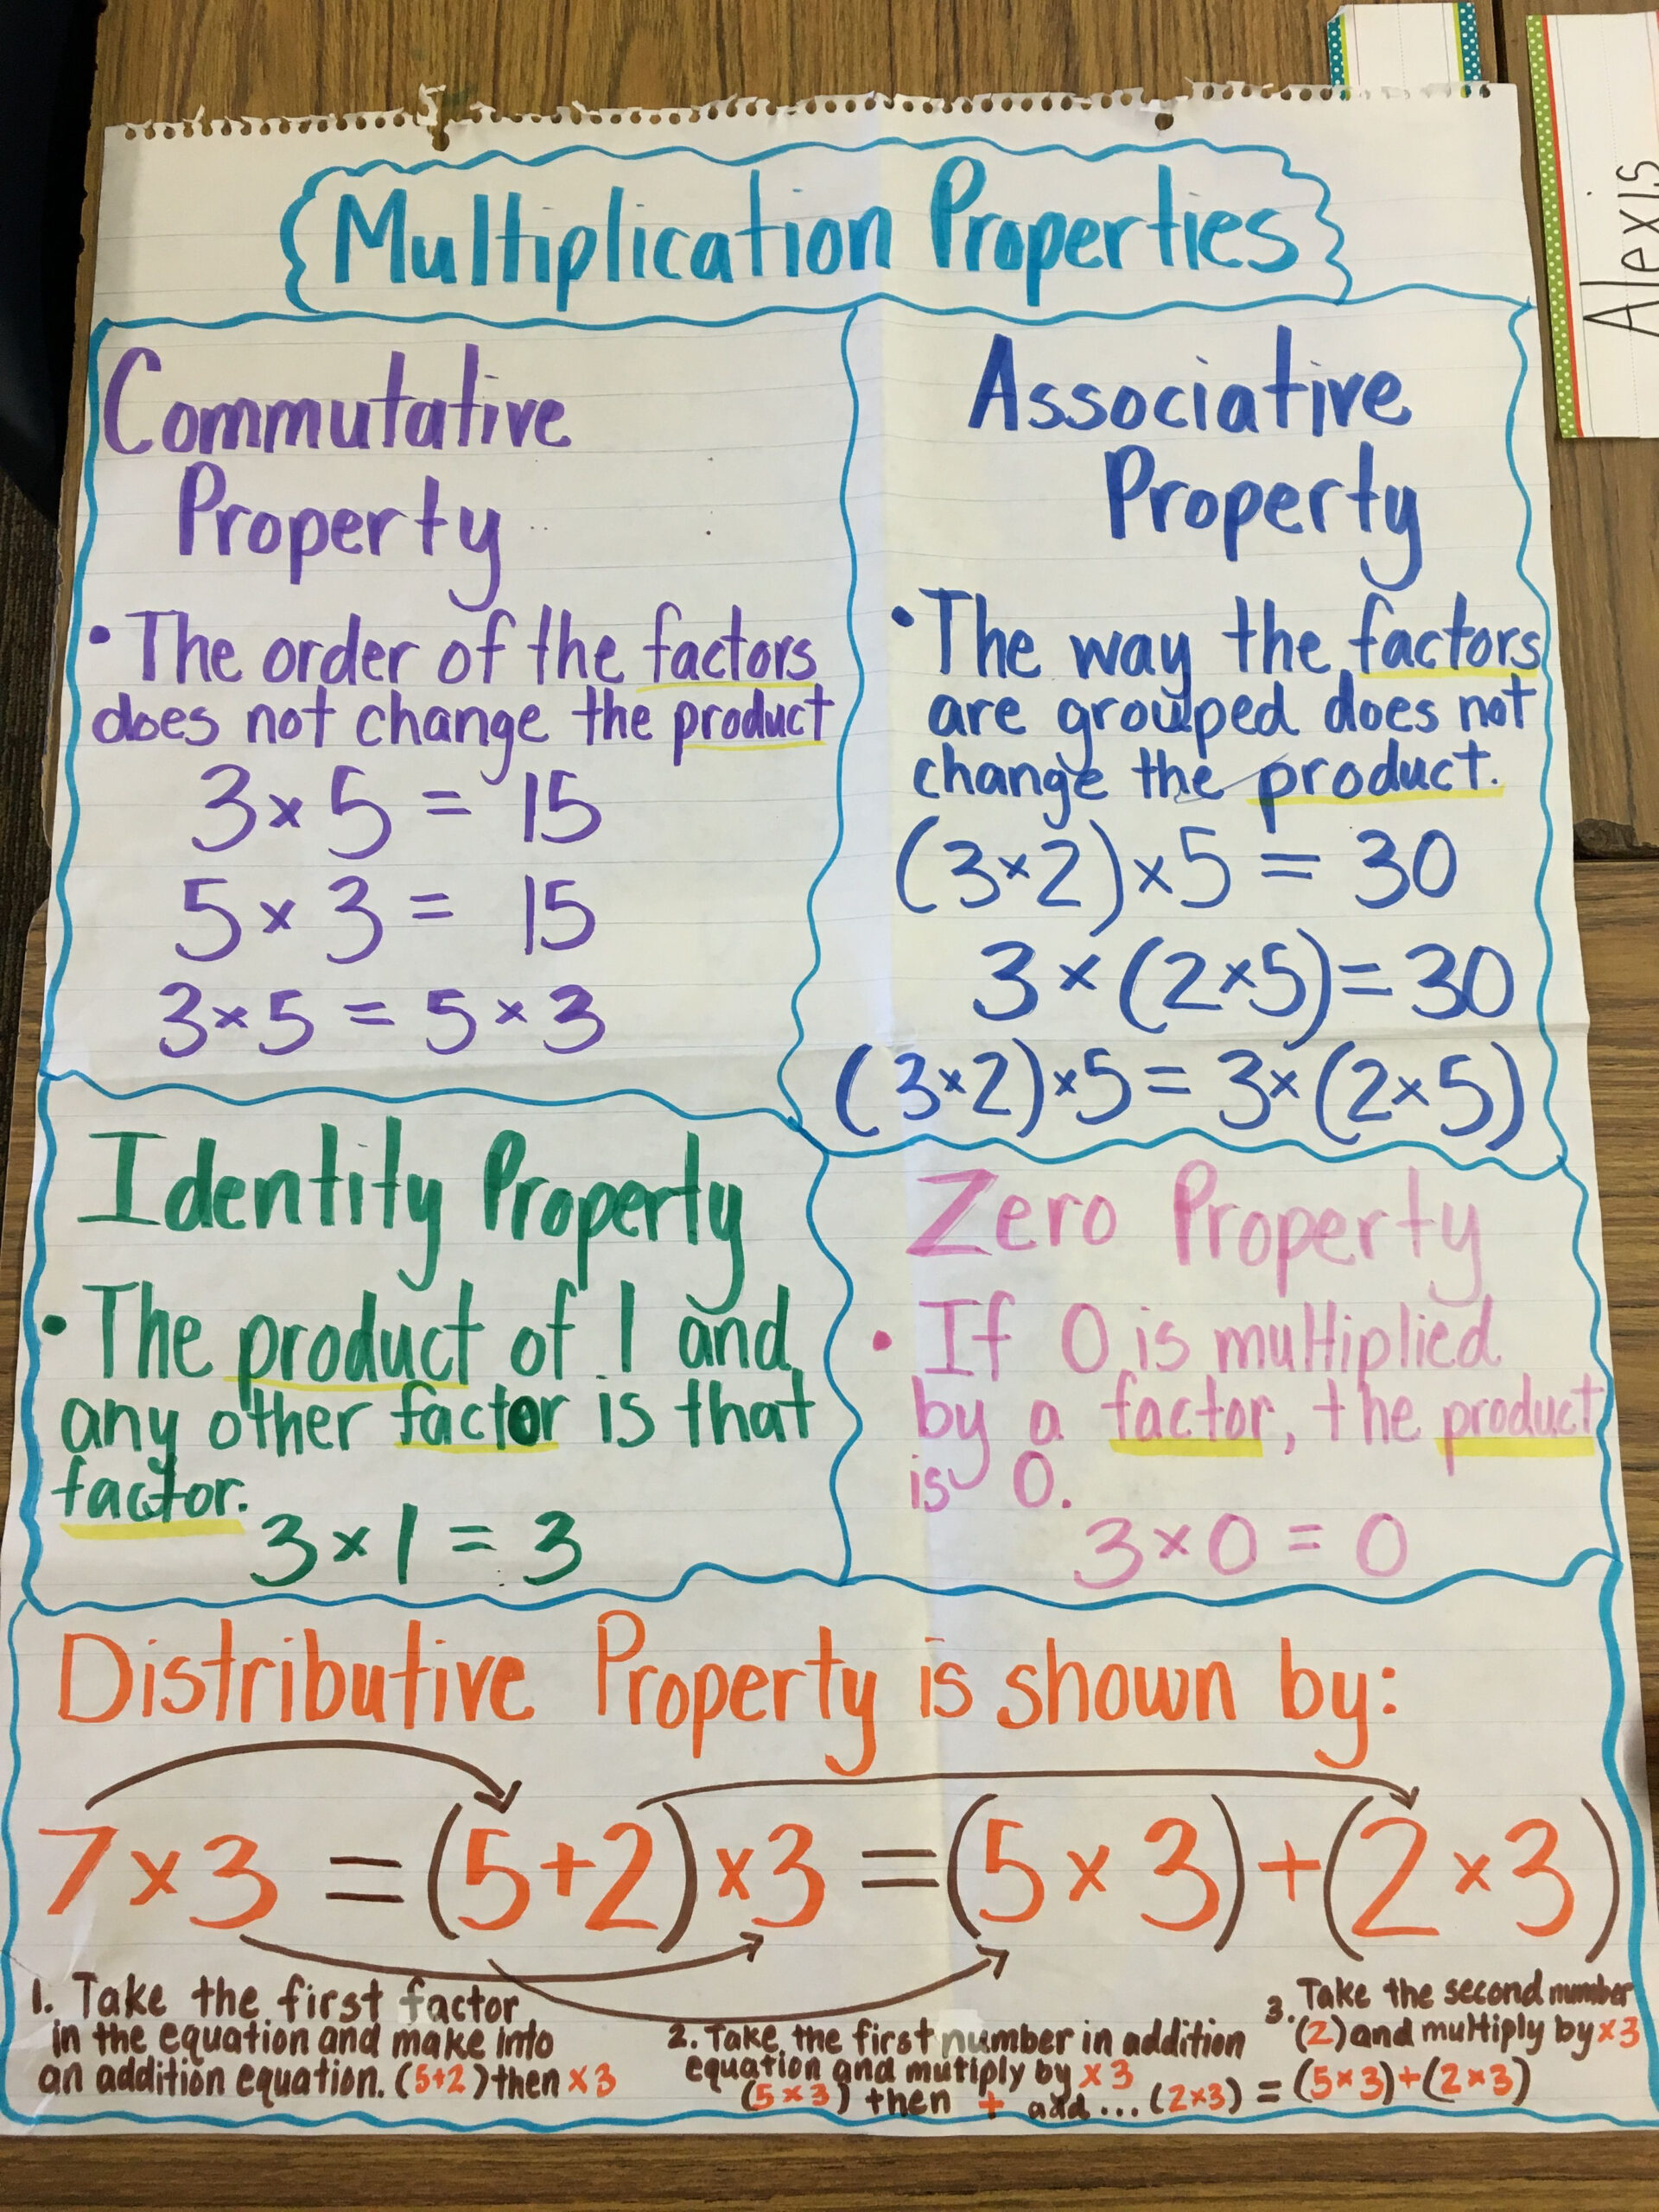 Multiplication Properties
Commutative
Property
• The order of the factors
does not change the product
3 × 5 = 15
5 × 3 = 15
3 × 5 = 5 × 3
Associative
Property
• The way the factors
are grouped does not
change the product.
(3 × 2) × 5 = 30
3 × (2 × 5) = 30
(3 × 2) × 5 = 3 × (2 × 5)
Identity Property
• The product of 1 and
any other factor is that
factor.
3 × 1 = 3
Zero Property
• If 0 is multiplied
by a factor, the product
is 0.
3 × 0 = 0
Distributive Property is shown by:
7 × 3 = (5 + 2) × 3 = (5 × 3) + (2 × 3)
1. Take the first factor
in the equation and make into
an addition equation. (5+2) then × 3
2. Take the first number in addition
equation and mutiply by × 3
(5 × 3) then + add... (2×3) = (5×3)+(2×3)
3. Take the second number
(2) and multiply by × 3
Alexis